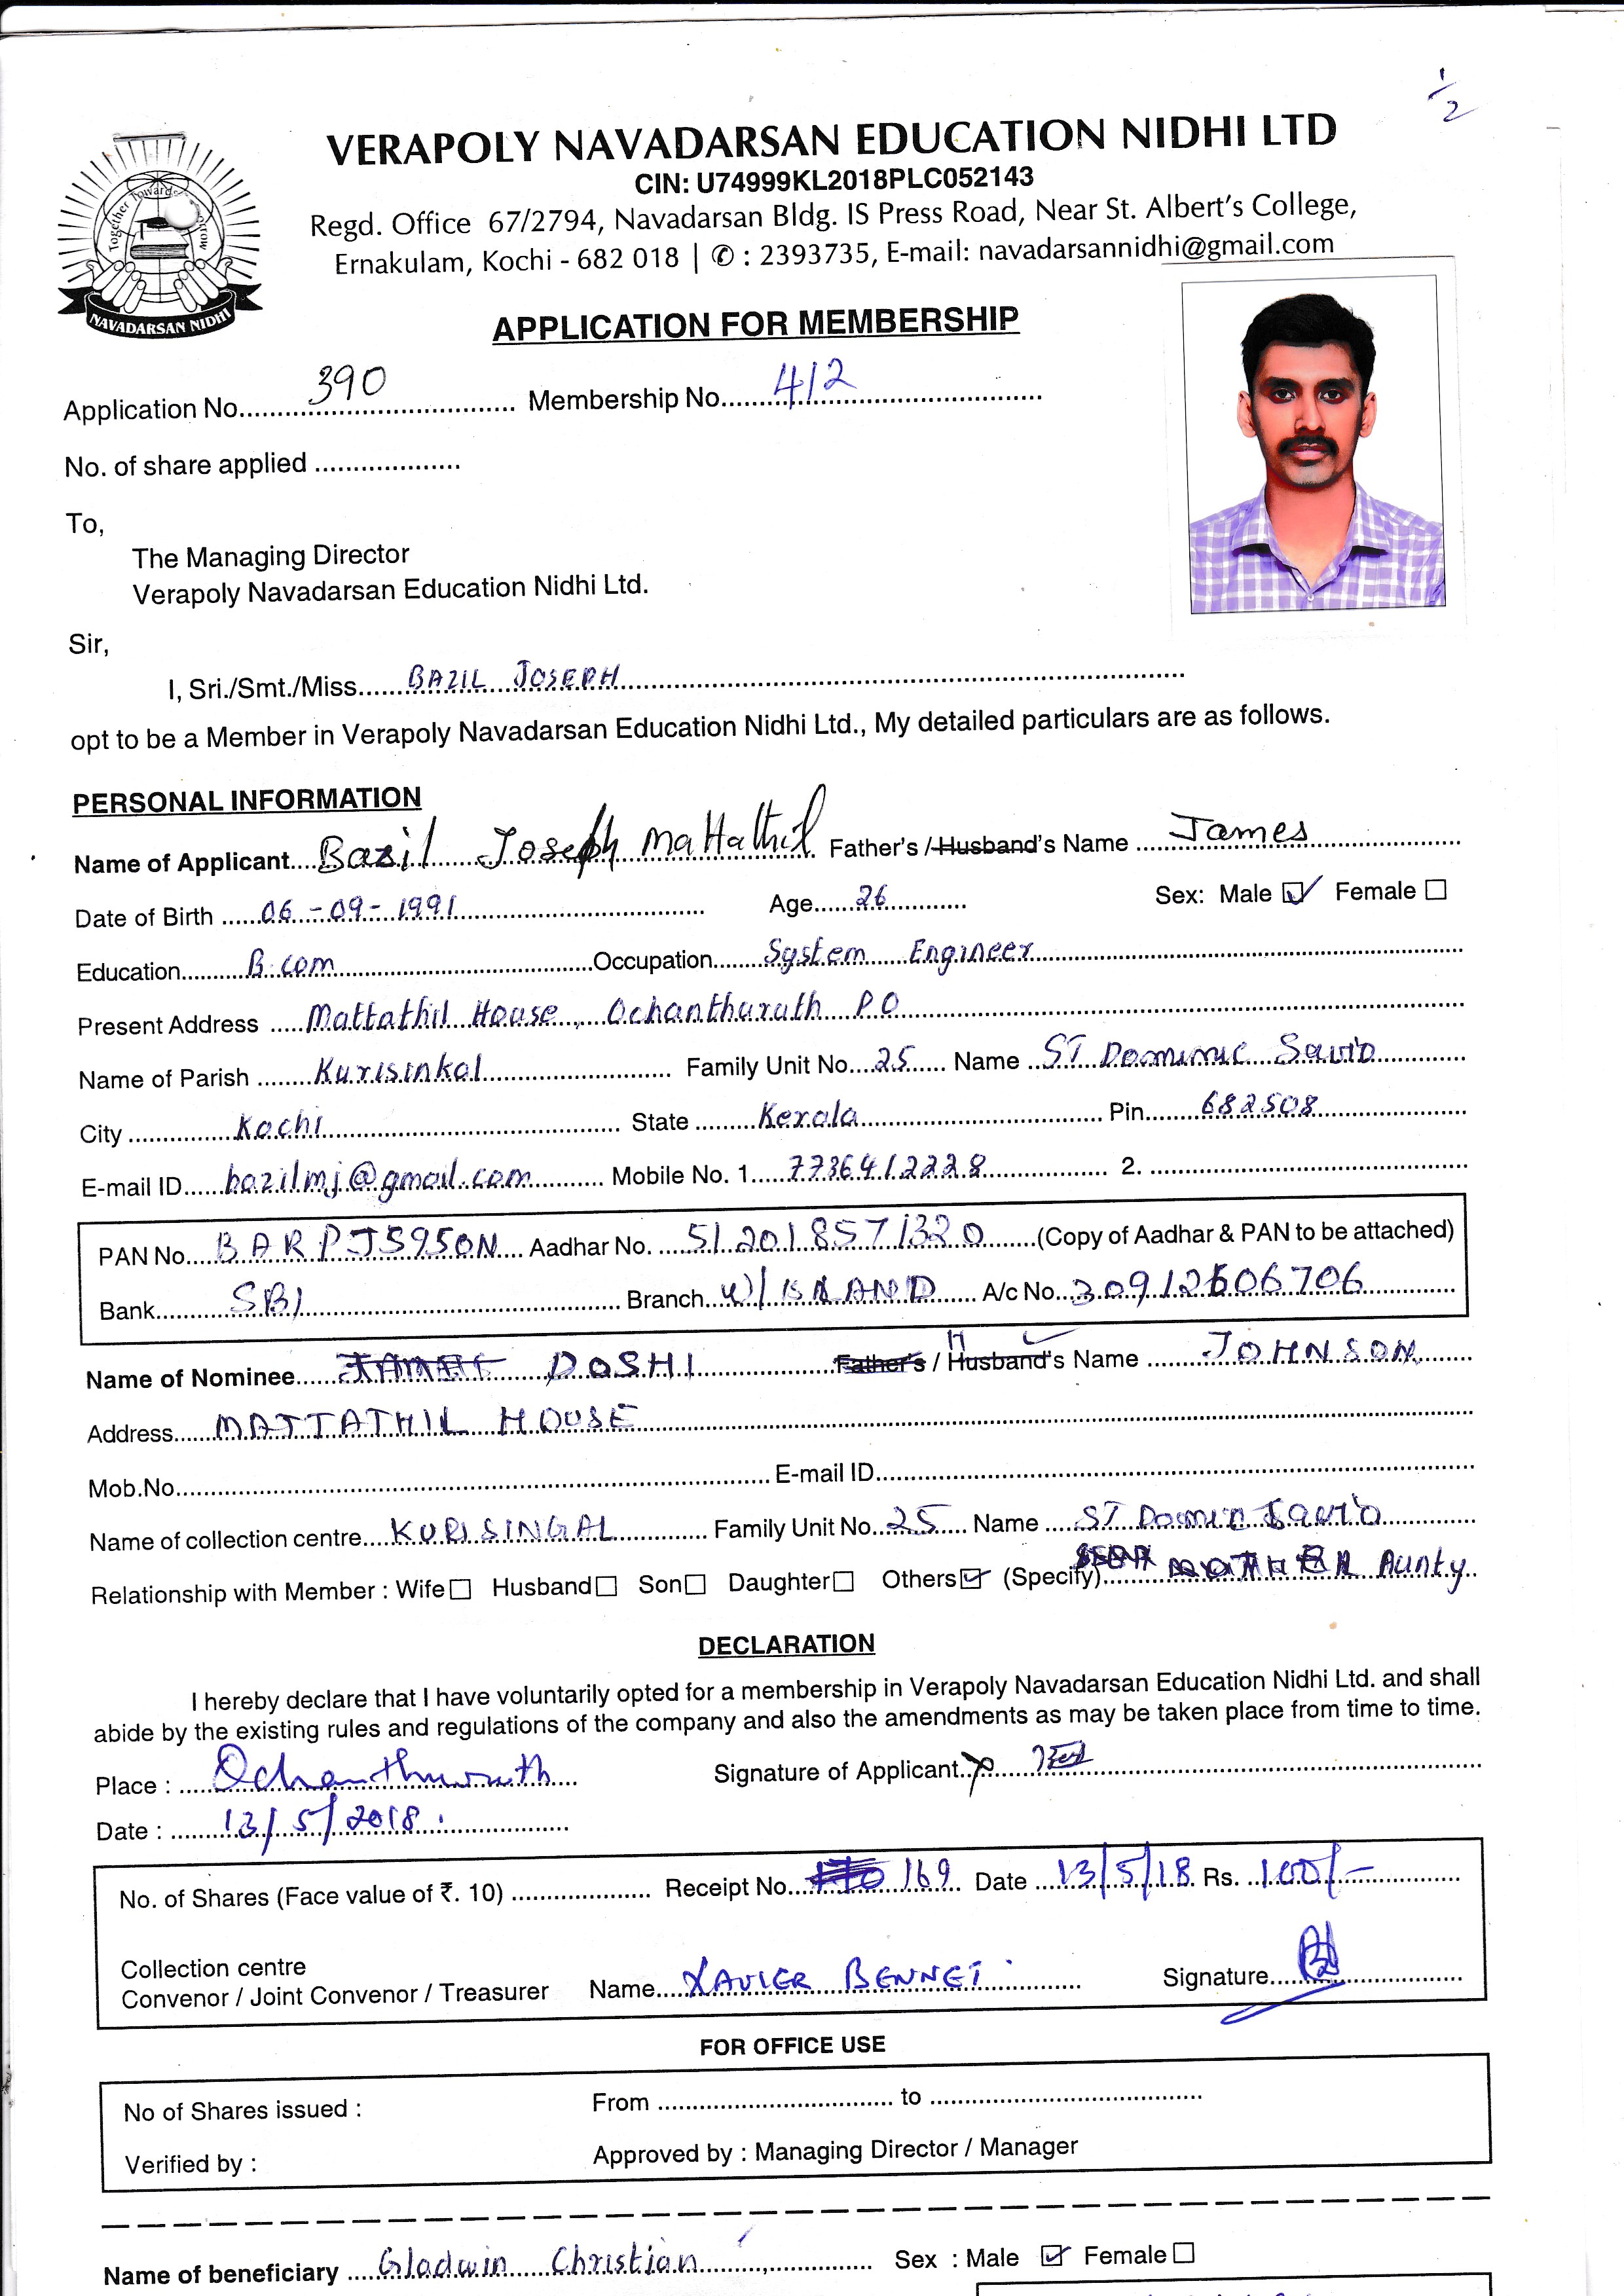 1/2
VERAPOLY NAVADARSAN EDUCATION NIDHI LTD
CIN: U74999KL2018PLC052143
Regd. Office 67/2794, Navadarsan Bldg. IS Press Road, Near St. Albert's College,
Ernakulam, Kochi - 682 018 | ✆ : 2393735, E-mail: navadarsannidhi@gmail.com
Together Towards
NAVADARSAN NIDHI
APPLICATION FOR MEMBERSHIP
Application No. 390 Membership No. 412
No. of share applied
To,
The Managing Director
Verapoly Navadarsan Education Nidhi Ltd.
Sir,
I, Sri./Smt./Miss BAZIL JOSEPH
opt to be a Member in Verapoly Navadarsan Education Nidhi Ltd., My detailed particulars are as follows.
PERSONAL INFORMATION
Name of Applicant Bazil Joseph Mattathil Father's / Husband's Name James
Date of Birth 06-09-1991 Age 26 Sex: Male ☑ Female ☐
Education B.com Occupation System Engineer
Present Address Mattathil House, Ochanthuruth P O
Name of Parish Kurisinkal Family Unit No. 25 Name ST Dominic Savio
City Kochi State Kerala Pin 682508
E-mail ID bazilmj@gmail.com Mobile No. 1. 7736412228 2.
PAN No. BARPJ5950N Aadhar No. 512018571320 (Copy of Aadhar & PAN to be attached)
Bank SBI Branch W/ISLAND A/c No. 30912606706
Name of Nominee DOSHI Father's / Husband's Name JOHNSON
Address MATTATHIL HOUSE
Mob.No. E-mail ID
Name of collection centre KURISINGAL Family Unit No. 25 Name ST Domin Savio
Relationship with Member : Wife ☐ Husband ☐ Son ☐ Daughter ☐ Others ☑ (Specify) Aunty
DECLARATION
I hereby declare that I have voluntarily opted for a membership in Verapoly Navadarsan Education Nidhi Ltd. and shall
abide by the existing rules and regulations of the company and also the amendments as may be taken place from time to time.
Place : Ochanthuruth Signature of Applicant x
Date : 13/5/2018.
No. of Shares (Face value of ₹. 10) Receipt No. 169 Date 13/5/18 Rs. 100/-
Collection centre
Convenor / Joint Convenor / Treasurer Name XAVIER BENNET Signature
FOR OFFICE USE
No of Shares issued : From to
Verified by : Approved by : Managing Director / Manager
Name of beneficiary Gladwin Christian Sex : Male ☑ Female ☐